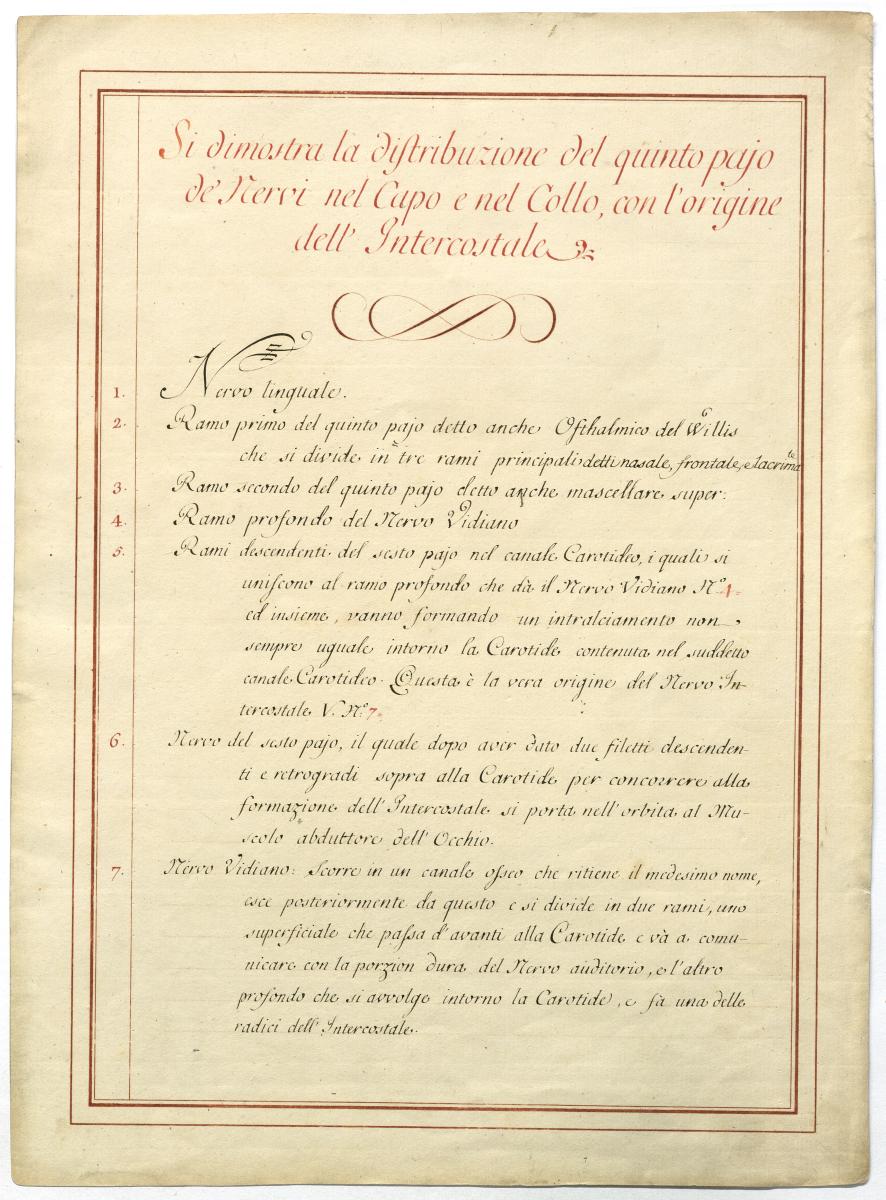 Si dimostra la distribuzione del quinto pajo
de' Nervi nel Capo e nel Collo, con l'origine
dell' Intercostale
1. Nervo linguale.
2. Ramo primo del quinto pajo detto anche Ofthalmico del Willis
che si divide in tre rami principali detti nasale, frontale, e lacrimale
3. Ramo secondo del quinto pajo detto anche mascellare super:
4. Ramo profondo del Nervo Vidiano
5. Rami descendenti del sesto pajo nel canale Carotideo, i quali si
uniscono al ramo profondo che dà il Nervo Vidiano N.o 4.
ed insieme, vanno formando un intralciamento non
sempre uguale intorno la Carotide contenuta nel suddetto
canale Carotideo. Questa è la vera origine del Nervo In-
tercostale V. N.o 7.
6. Nervo del sesto pajo, il quale dopo aver dato due filetti descenden-
ti e retrogradi sopra alla Carotide per concorrere alla
formazione dell' Intercostale si porta nell'orbita al Mu-
scolo abduttore dell' Occhio.
7. Nervo Vidiano: Scorre in un canale osseo che ritiene il medesimo nome,
esce posteriormente da questo e si divide in due rami, uno
superficiale che passa d'avanti alla Carotide e và a comu-
nicare con la porzion dura del Nervo auditorio, e l'altro
profondo che si avvolge intorno la Carotide, e fà una delle
radici dell' Intercostale.